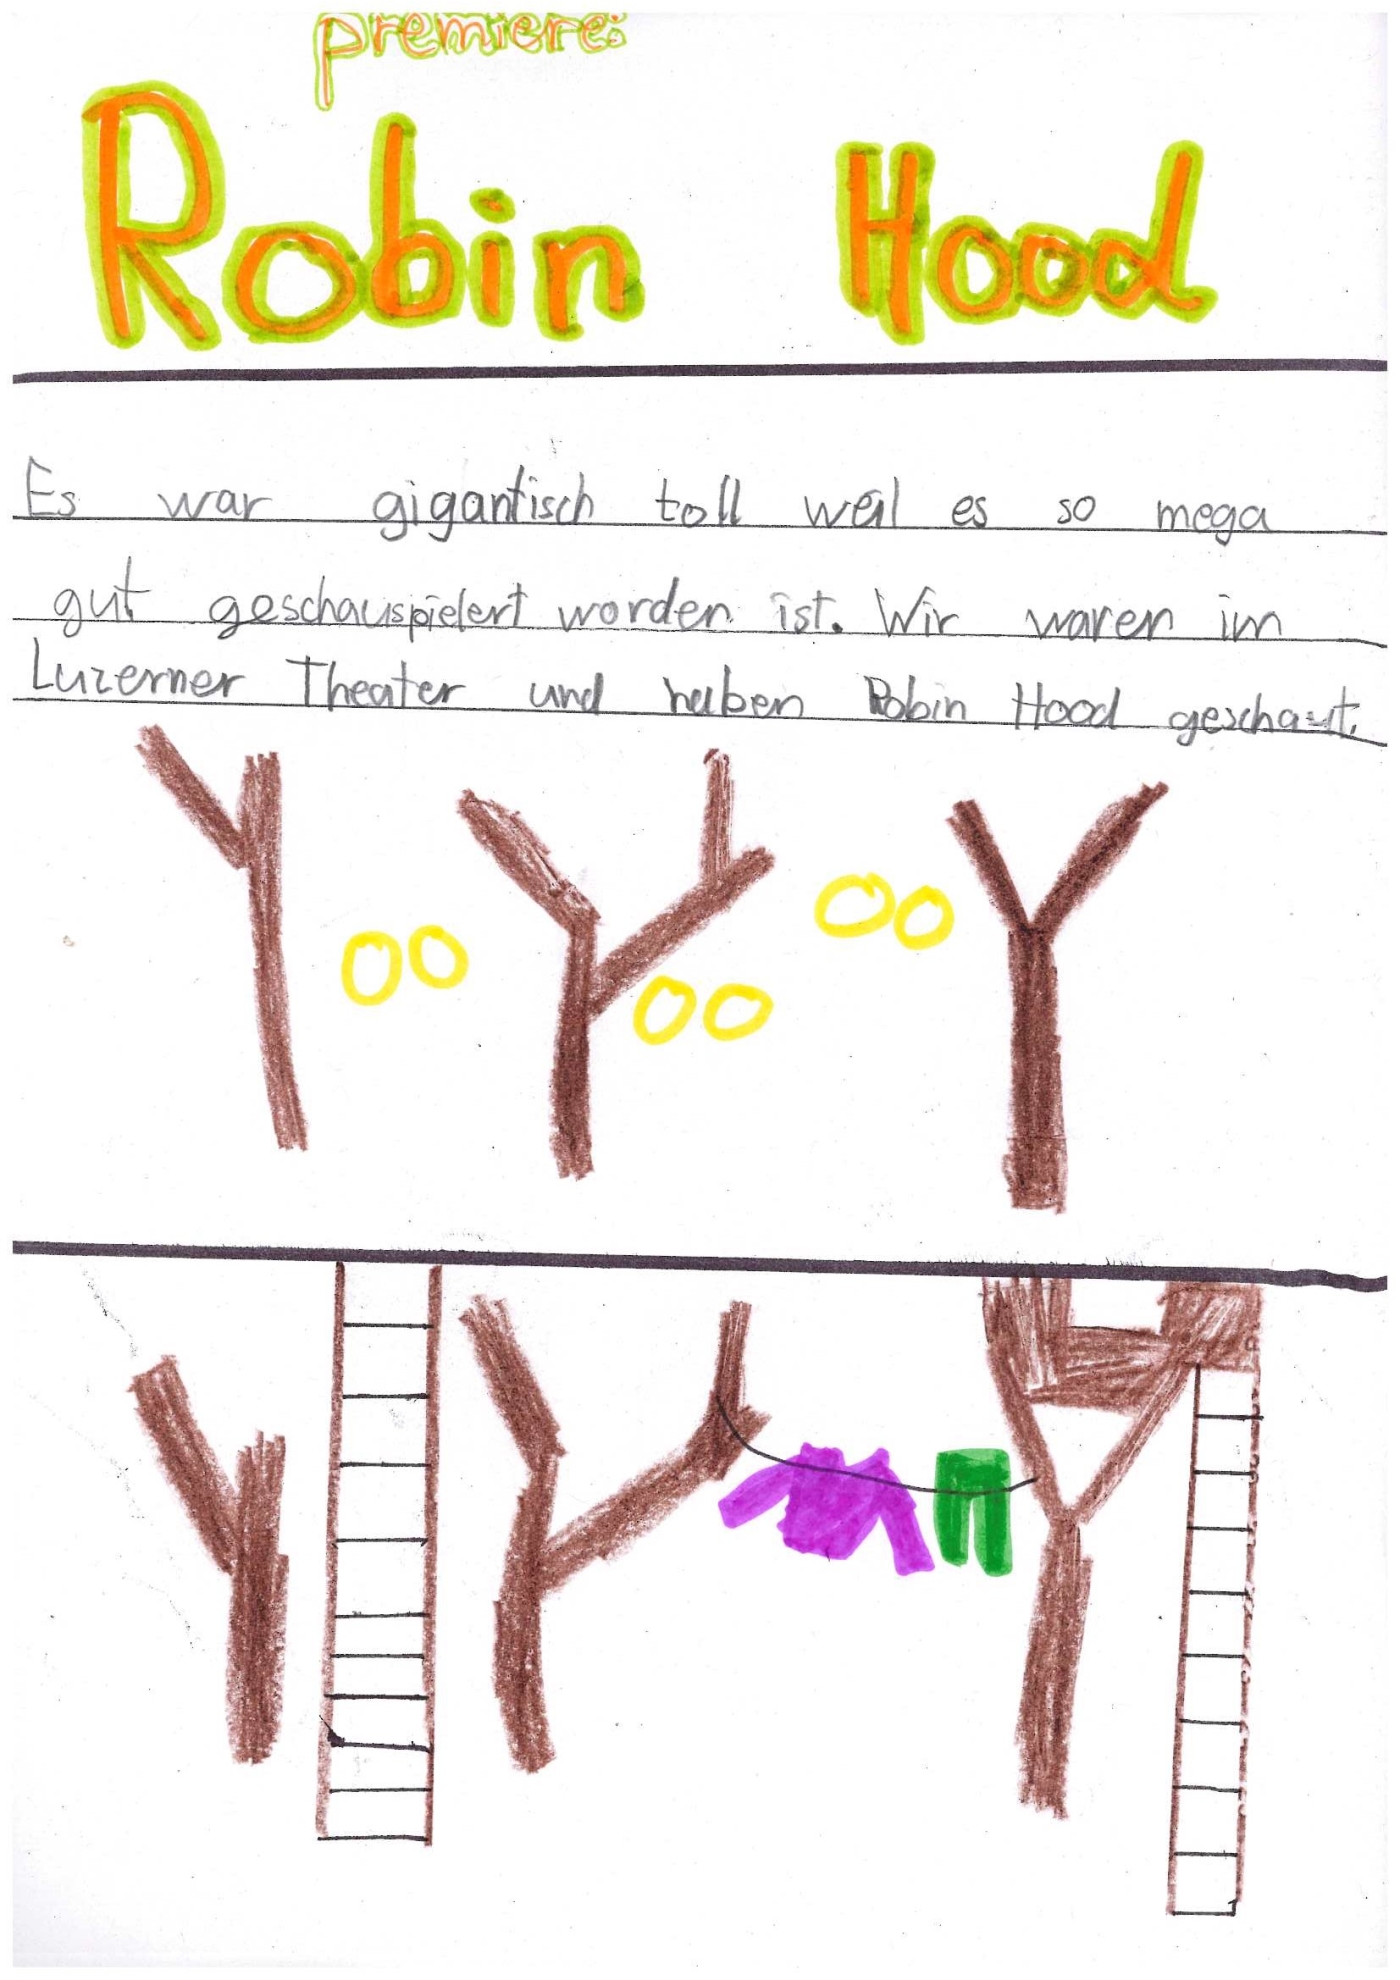 premiere:
Robin Hood
Es war gigantisch toll weil es so mega
gut geschauspielert worden ist. Wir waren im
Luzerner Theater und haben Robin Hood geschaut.